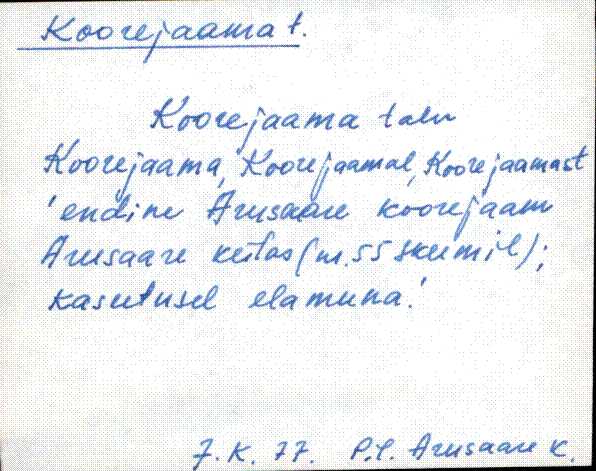 Koorejaama t.
Koorejaama talu
Koorejaama, Koorejaamal, Koorejaamast
'endine Arusaare koorejaam
Arusaare keilas (nr. 55 skeemil);
kasutusel elamuna.'
J. K. 77. P.-J. Arusaare k.